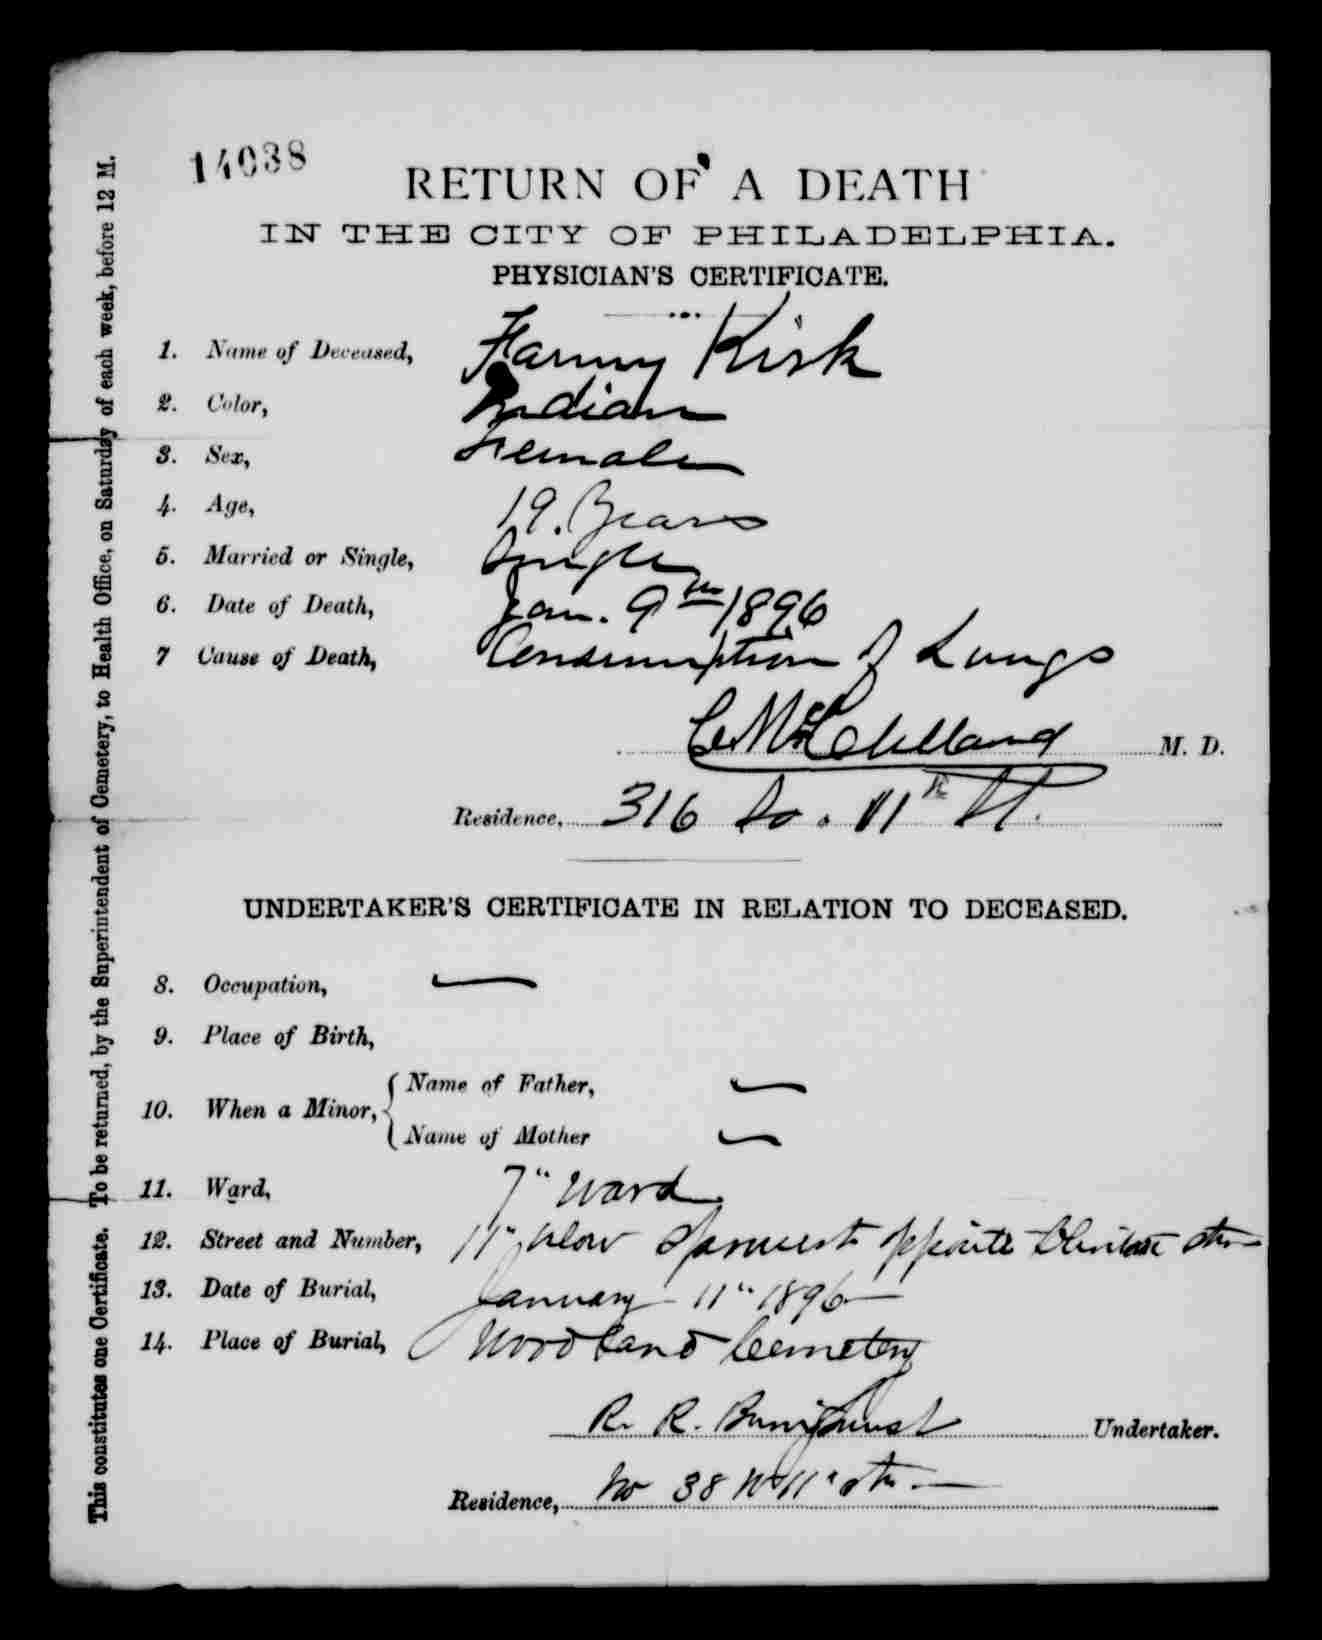 14038
RETURN OF A DEATH
IN THE CITY OF PHILADELPHIA.
PHYSICIAN'S CERTIFICATE.
1. Name of Deceased, Fanny Kirk
2. Color, Indian
3. Sex, Female
4. Age, 19. Years
5. Married or Single, Single
6. Date of Death, Jan. 9th 1896
7 Cause of Death, Consumption of Lungs
McClelland M. D.
Residence, 316 So. 11th St.
UNDERTAKER'S CERTIFICATE IN RELATION TO DECEASED.
8. Occupation, —
9. Place of Birth,
10. When a Minor, { Name of Father, —
Name of Mother —
11. Ward, 7" Ward
12. Street and Number, 11" below Spruce opposite Clinton str
13. Date of Burial, January 11" 1896
14. Place of Burial, Woodland Cemetery
R. R. Bringhurst Undertaker.
Residence, No 38 N 11" str
This constitutes one Certificate. To be returned, by the Superintendent of Cemetery, to Health Office, on Saturday of each week, before 12 M.